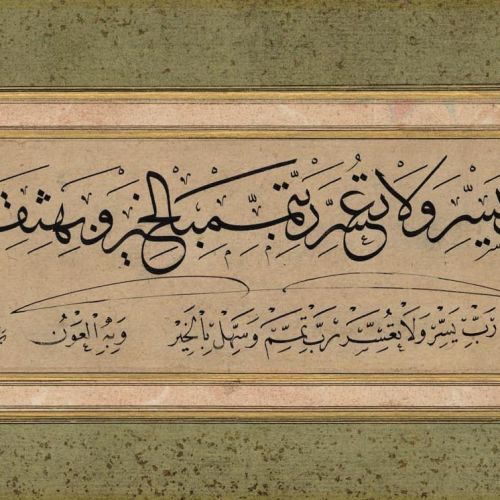 يسر ولا تعسر رب تمم بالخير وبه ثقـ
رب يسر ولا تعسر رب تمم وسهل بالخير وبه العون